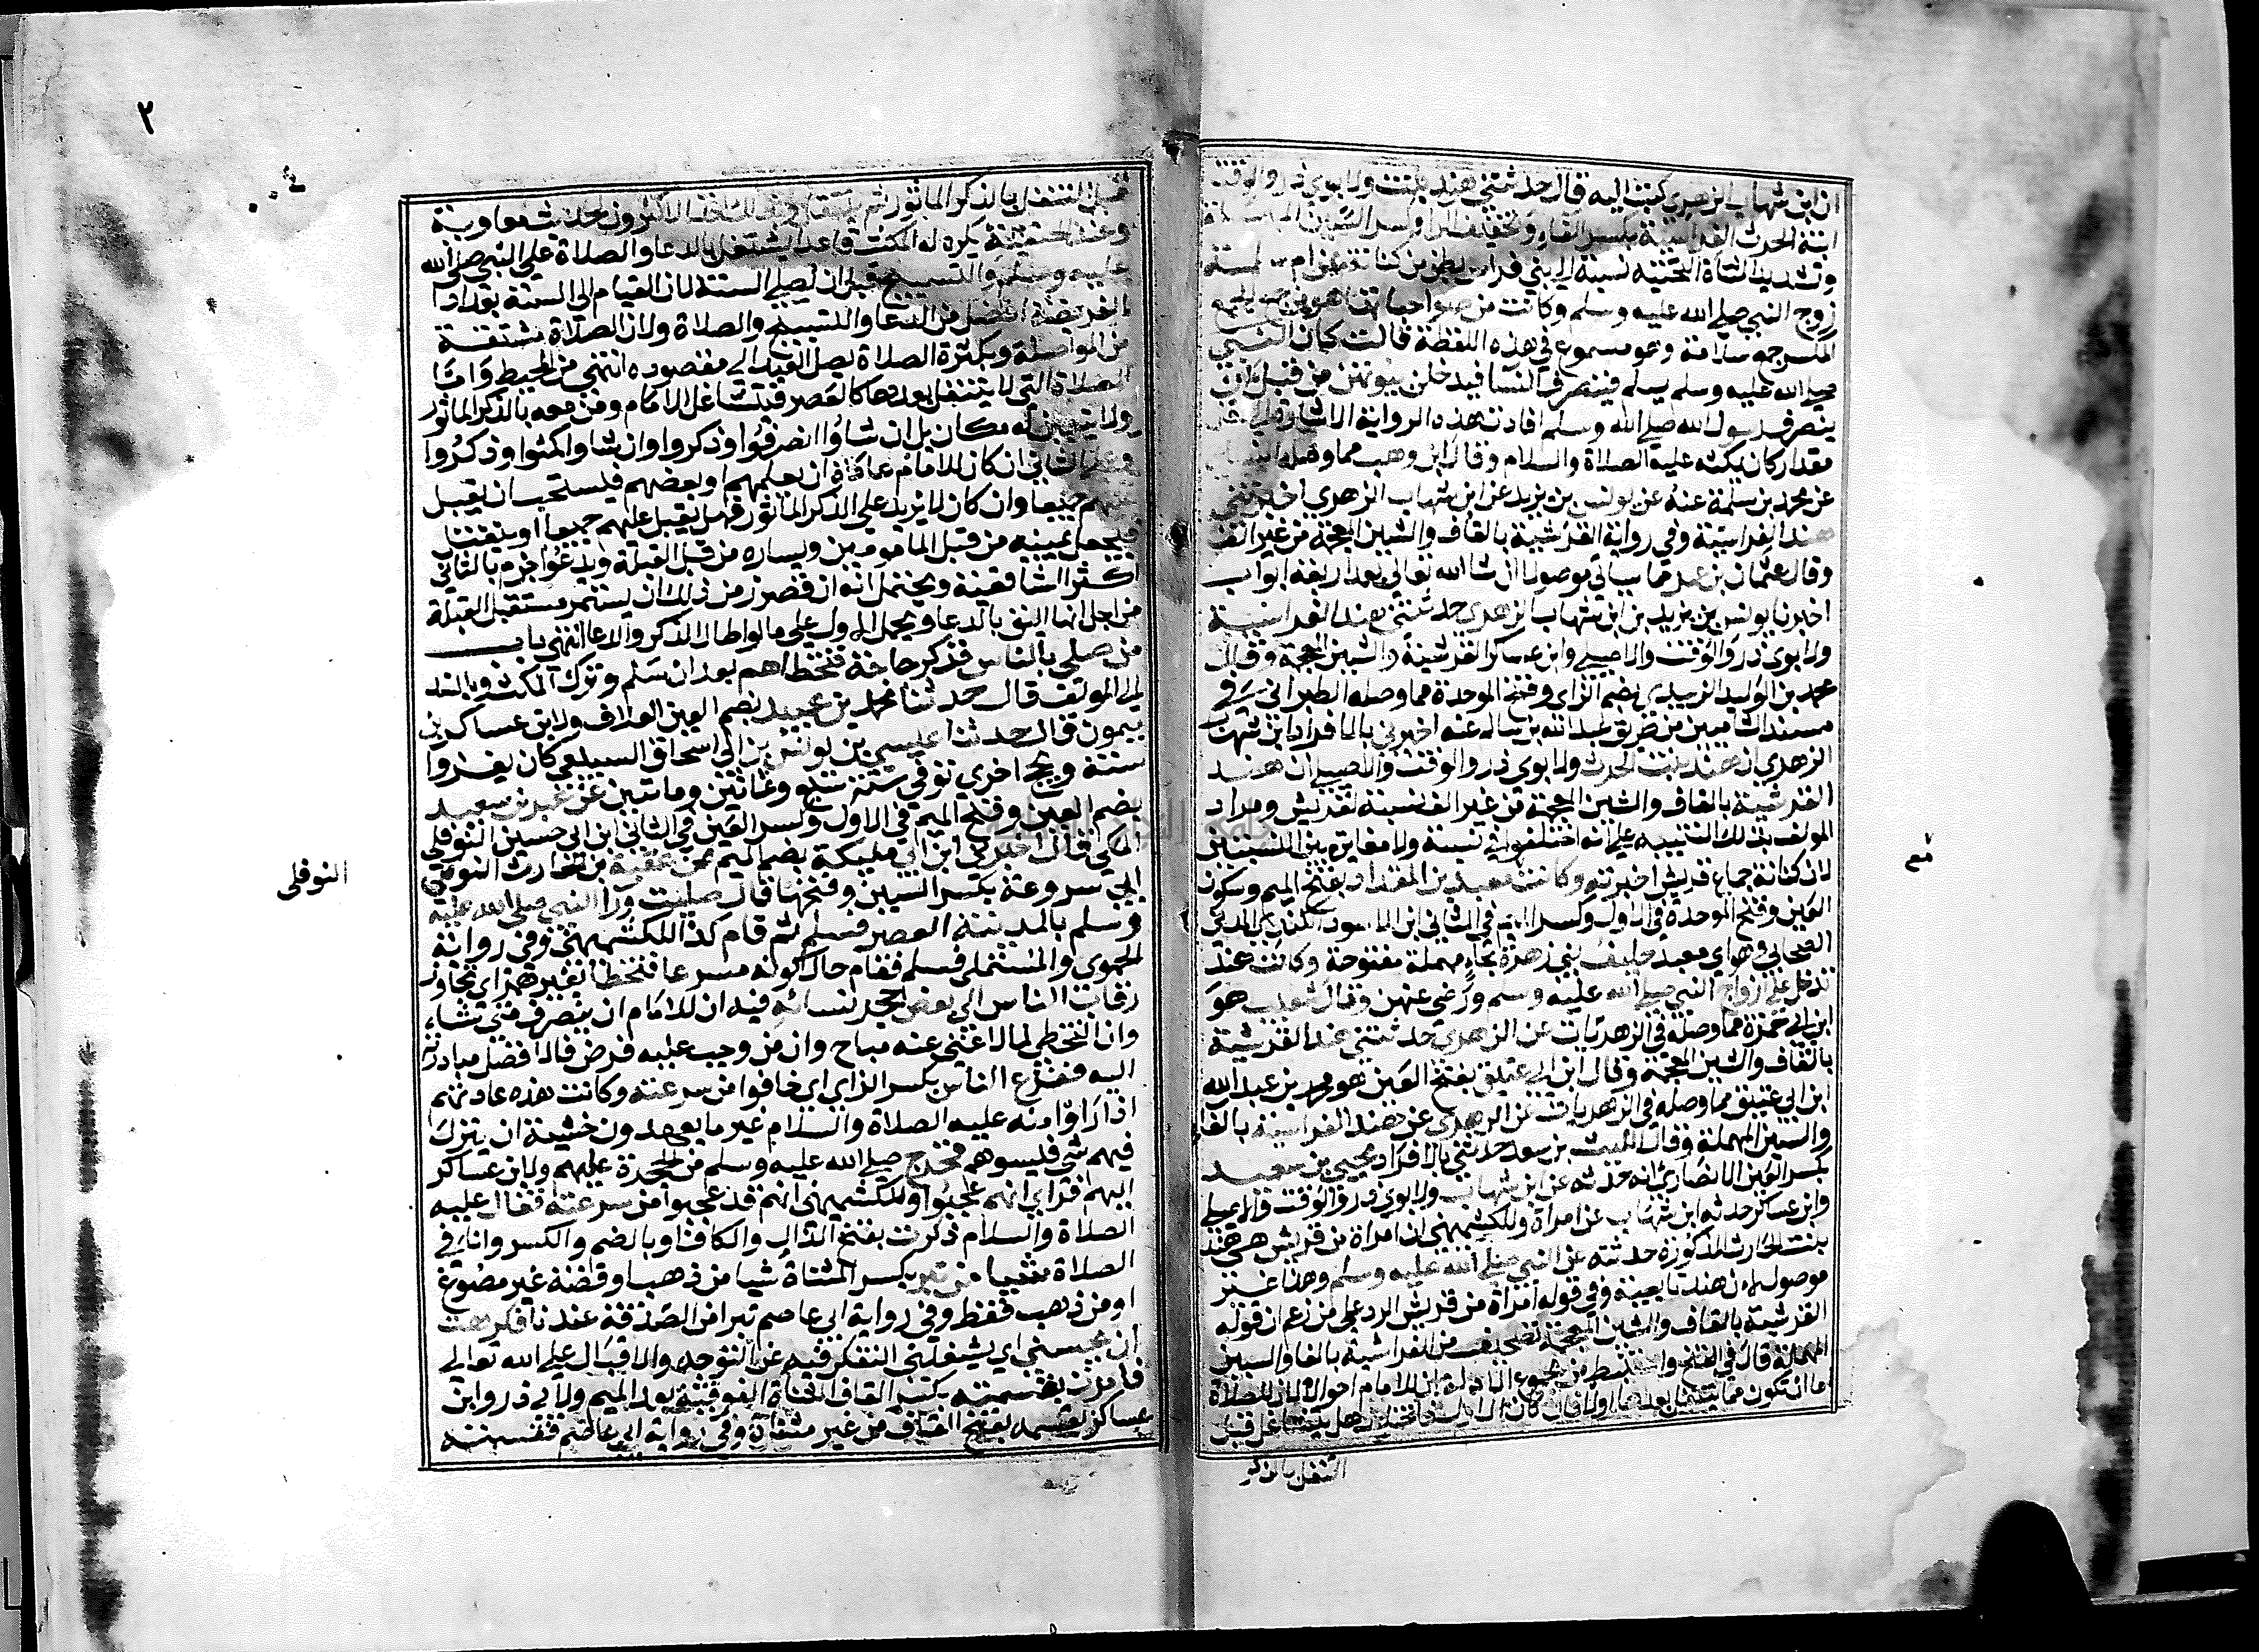 ان ابن شهاب الزهري كتب اليه قال حدثتني هند بنت ولابوي ذر والوقت
ابنة الحرث الفراسية بكسر الفاء وتخفيف الرا وكسر السين المهملة
وتشديد المثناة التحتية نسبة الي بني فراس بطن من كنانة عن ام سلمة
زوج النبي صلي الله عليه وسلم وكانت من صواحباتها هو من جمع الجمع
المكسر جمع سلامة وهو مسموع في هذه اللفظة قالت كان النبي
صلي الله عليه وسلم يسلم فينصرف النسا فيدخلن بيوتهن من قبل ان
ينصرف رسول الله صلي الله وسلم افادت هذه الرواية الاشارة الي اقل
مقدار كان يمكثه عليه الصلاة والسلام وقال ابن وهب مما وصله النساي
عن محمد بن سلمة عنه عن يونس بن يزيد عن ابن شهاب الزهري اخبرتني
هند الفراسية وفي رواية القرشية بالقاف والشين المعجمة من غير الف
وقال عثمان بن عمر مما سياتي موصولا ان شا الله تعالي بعد اربعة ابواب
اخبرنا يونس بن يزيد بن ابن شهاب الزهري حدثتني هند الفراسية
ولابوي ذر والوقت والاصيلي وابن عساكر القرشية والشين المعجمة وقال
محمد بن الوليد الزبيدي بضم الزاي وفتح الموحدة مما وصله الطبراني في
مسند الشاميين من طريق عبد الله بن سالم عنه اخبرني بالافراد ابن شهاب
الزهري ان هند بنت الحرث ولابوي ذر والوقت والاصيلي ان هند
القرشية بالقاف والشين المعجمة من غير الف نسبة لقريش ومراد
المولف بذلك التنبيه علي انه اختلف في نسبة ولا مغايرة بين النسبتين
لان كنانة جماع قريش اخبرته وكانت معبد بن المقداد بفتح الميم وسكون
العين وفتح الموحدة في الاول وكسر الميم في الثاني ابن الاسود الكندي المدني
الصحابي وهو اي معبد حليف بني زهرة بحاء مهملة مفتوحة وكانت عند
تدخل علي ازواج النبي صلي الله عليه وسلم ورضي عنهن وقال شعيب هو
ابن ابي حمزة مما وصله في الزهريات عن الزهري حدثتني هند القرشية
بالقاف والشين المعجمة وقال ابن ابي عتيق بفتح العين هو محمد بن عبد الله
ابن ابي عتيق مما وصله في الزهريات عن الزهري عن هند الفراسية بالفا
والسين المهملة وقال الليث بن سعد حدثني بالافراد يحيي بن سعيد
بكسر العين الانصاري انه حدثه عن ابن شهاب ولابوي ذر والوقت والاصيلي
وابن عساكر حدثه ابن شهاب عن امراة وللكشميهني ان امراة من قريش هي هند
بنت الحارث المذكورة حدثته عن النبي صلي الله عليه وسلم وهذا غير
موصول لان هند تابعية وفي قوله امراة من قريش الرد علي من زعم ان قوله
القرشية بالقاف والشين المعجمة تصحيف من الفراسية بالفا والسين
المهملة قال في الفتح واستنبط من مجموع الادلة ان للامام احوالا لان الصلاة
اما ان تكون مما يتنفل بعدها اولا فان كان الاول فاختلف هل يتشاغل قبل
التنفل بالذكر
مع
٢
قبل التنفل بالذكر الماثور ثم يتنفل وبذلك اخذ الاكثرون لحديث معاوية
وعند الحنفية يكره له المكث قاعدا يشتغل بالدعا والصلاة علي النبي صلي الله
عليه وسلم والتسبيح قبل ان يصلي السنة لان القيام الي السنة بعد ادا
الفريضة افضل من الدعا والتسبيح والصلاة ولان الصلاة مشتقة
من المواصلة وبكثرة الصلاة يصل العبد الي مقصوده انتهي من المحيط واما
الصلاة التي لا يتنفل بعدها كالعصر فيتشاغل الامام ومن معه بالذكر الماثور
ولا يتعين له مكان بل ان شاوا انصرفوا وذكروا وان شاوا مكثوا وذكروا
وعلي الثاني ان كان للامام عادة ان يعلمهم او يعظهم فيستحب ان يقبل
عليهم جميعا وان كان لا يزيد علي الذكر الماثور فهل يقبل عليهم جميعا او ينفتل
فيجعل يمينه من قبل المامومين ويساره من قبل القبلة ويدعوا جزم بالثاني
اكثر الشافعية ويحتمل انه ان قصر زمن ذلك ان يستمر مستقبل القبلة
من اجل انها اليق بالدعا ويحمل الاول علي ما لو اطال الذكر والدعا انتهي باب
من صلي بالناس فذكر حاجة فتخطاهم بعد ان سلم وترك المكث وبالسند
الي المولف قال حدثنا محمد بن عبيد بضم العين العلاف ولابن عساكر بن
ميمون قال حدثنا عيسي بن يونس بن ابي اسحاق السبيعي كان يغزوا
سنة ويحج اخري توفي سنة سبع وثمانين ومائتين عن عمر بن سعيد
بضم العين وفتح الميم في الاول وكسر العين في الثاني ابن ابي حسين النوفلي
المكي قال اخبرني ابن ابي مليكة بضم الميم عن عقبة بن الحارث النوفلي
ابي سروعة بكسر السين وفتحها قال صليت ورا النبي صلي الله عليه
وسلم بالمدينة العصر فسلم ثم قام كذا للكشميهني وفي رواية
الحموي والمستملي فسلم فقام حال كونه مسرعا فتخطا بغير همز اي تجاوز
رقاب الناس الي بعض حجر نسائه فيه ان للامام ان ينصرف متي شاء
وان التخطي لما لا غني عنه مباح وان من وجب عليه فرض فالافضل مبادرته
اليه ففزع الناس بكسر الزاي اي خافوا من سرعته وكانت هذه عادتهم
اذا راوا منه عليه الصلاة والسلام غير ما يعهدون خشية ان ينزل
فيهم شي فيسوهم فخرج صلي الله عليه وسلم من الحجرة عليهم ولابن عساكر
اليهم فراي انهم عجبوا وللكشميهني انهم قد عجبوا من سرعته فقال عليه
الصلاة والسلام ذكرت بفتح الذال والكاف او بالضم والكسر وانا في
الصلاة شيا من تبر بكسر المثناة شيا من ذهب او فضة غير مصوغ
او من ذهب فقط وفي رواية ابي عاصم تبرا من الصدقة عندنا فكرهت
ان يحبسني اي يشغلني التفكر فيه عن التوجه والاقبال علي الله تعالي
فامرت بقسمته بكسر القاف والمثناة الفوقية بعد الميم ولابي ذر وابن
عساكر بقسمه بفتح القاف من غير مثناة وفي رواية ابي عاصم فقسمته
النوفلي